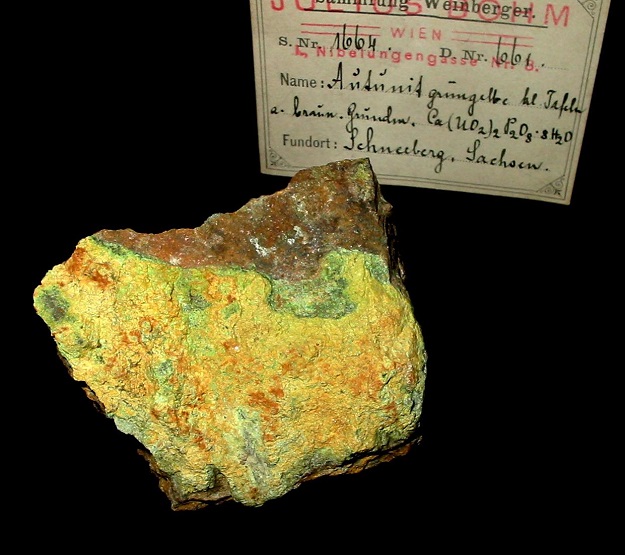 JULIUS BÖHM
Sammlung Weinberger.
WIEN
S. Nr. 1664. D. Nr. 661.
I, Nibelungengasse Nr. 8.
Name: Autunit grüngelbe kl. Tafeln
a. braun. Grundm. Ca(UO2)2P2O8·8H2O
Fundort: Schneeberg. Sachsen.